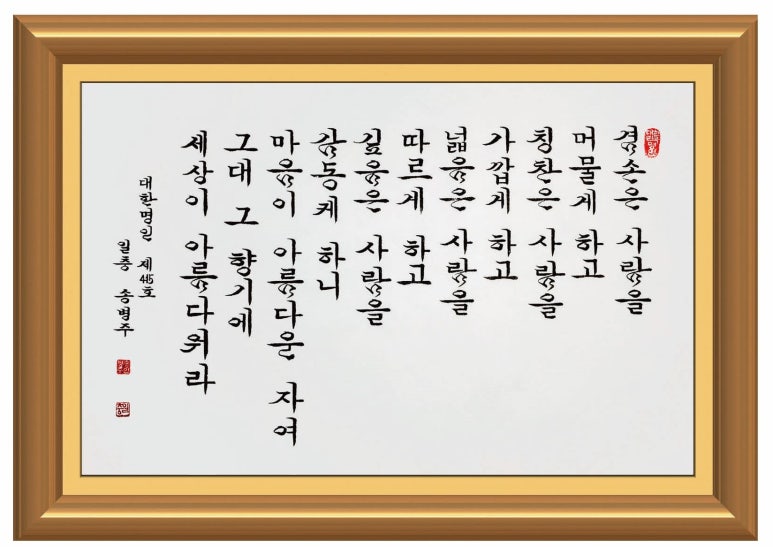 겸손은 사람을
머물게 하고
칭찬은 사람을
가깝게 하고
넓음은 사람을
따르게 하고
깊음은 사람을
감동케 하니
마음이 아름다운 자여
그대 그 향기에
세상이 아름다워라
대한명인
일충 송병주